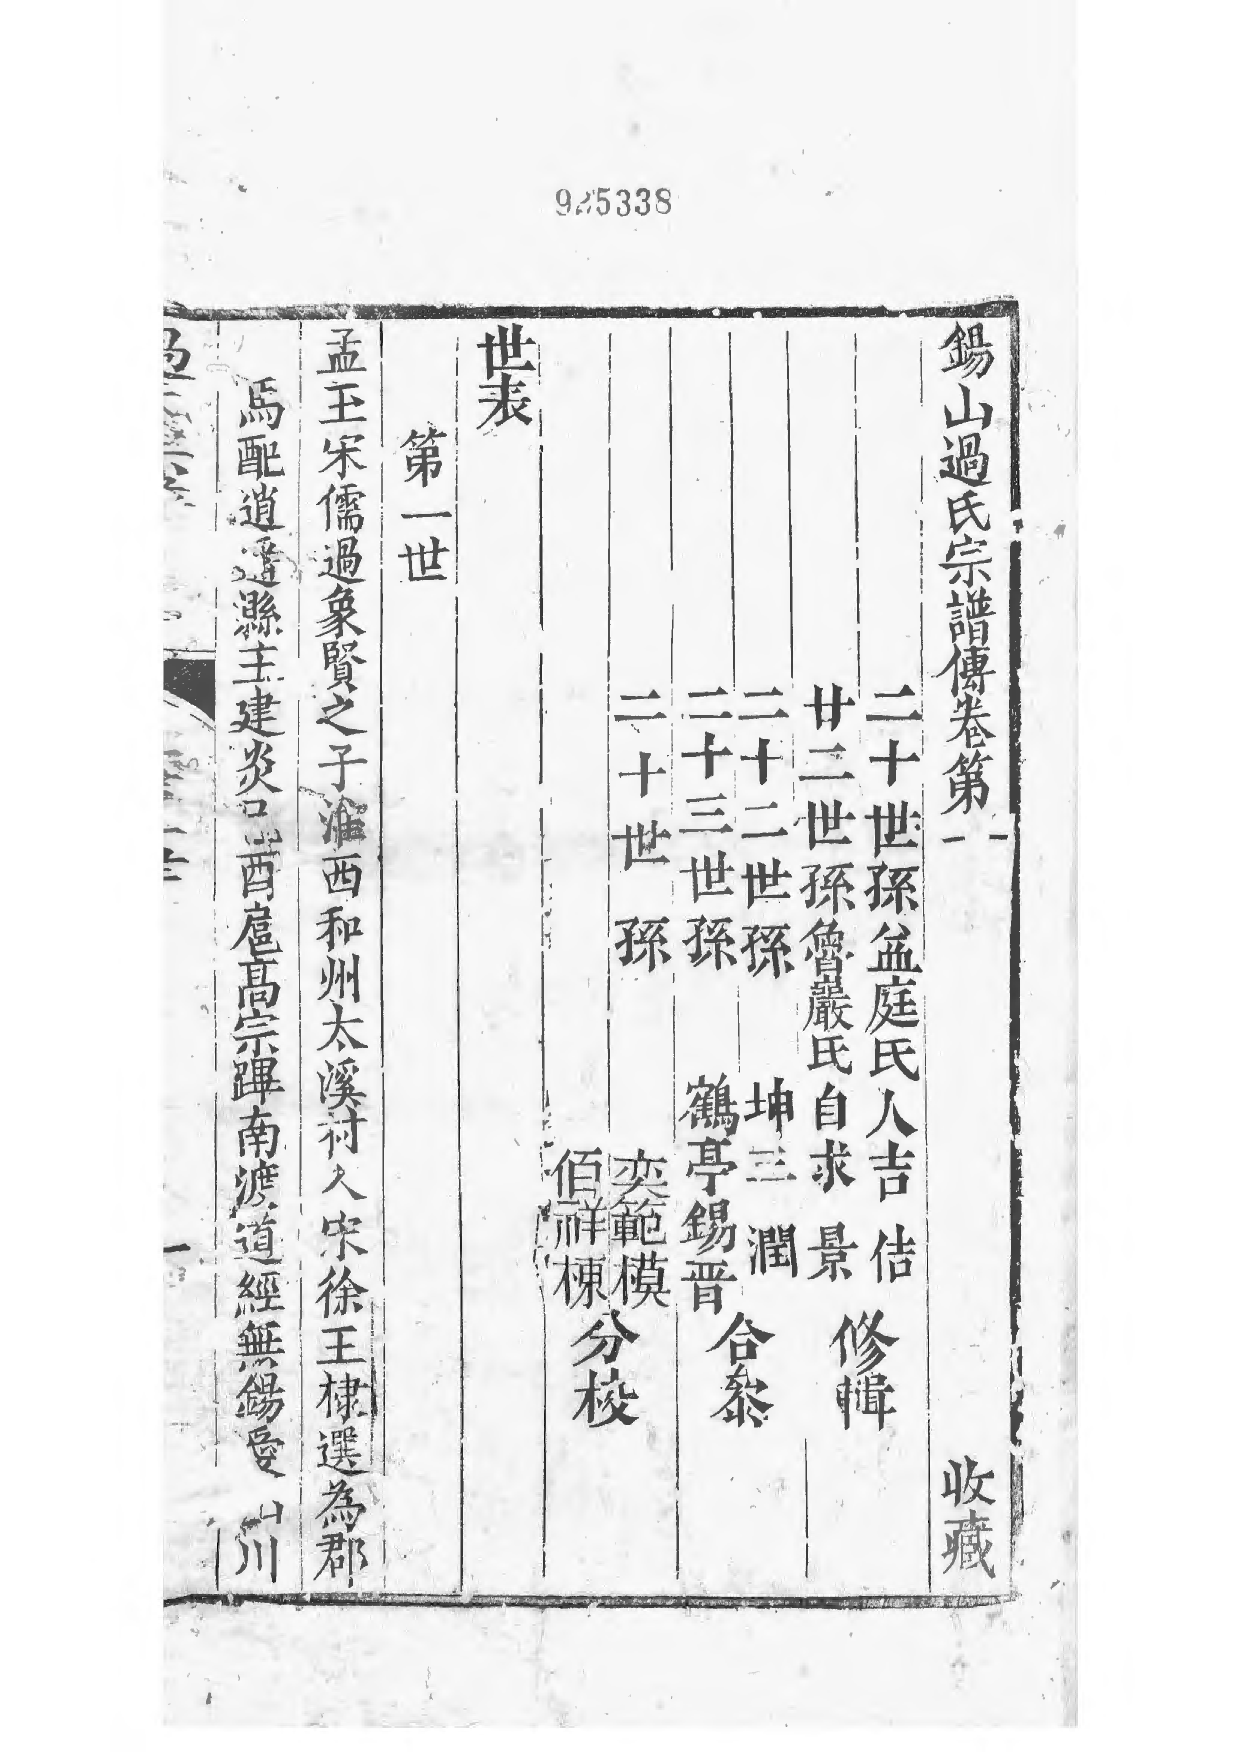 925338
錫山過氏宗譜傳卷第一 收藏
二十世孫益庭氏人吉 佶
廿二世孫魯巖氏自求 景
修輯
二十二世孫 坤三 潤
二十三世孫 鶴亭錫晋
合叅
二十世孫 奕範模
佰祥棟
分校
世表
第一世
孟玉宋儒過象賢之子淮西和州太溪村人宋徐王棣選為郡
馬配逍遥縣主建炎己酉扈髙宗蹕南渡道經無錫愛山川
一